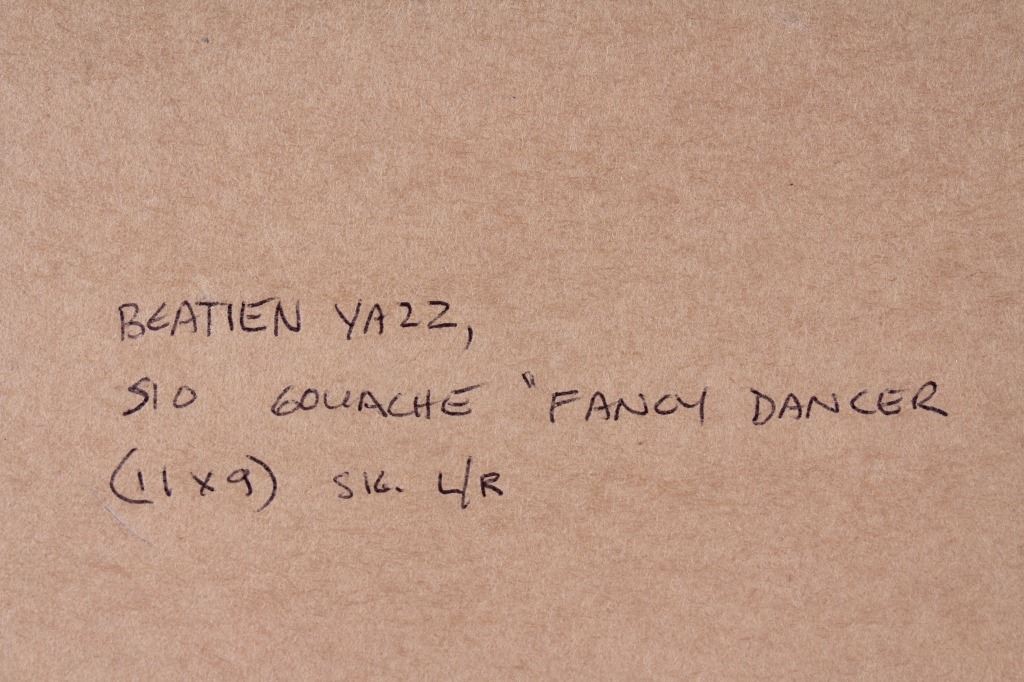 BEATIEN YAZZ,
SIO GOUACHE "FANCY DANCER
(11 x 9) SIG. L/R